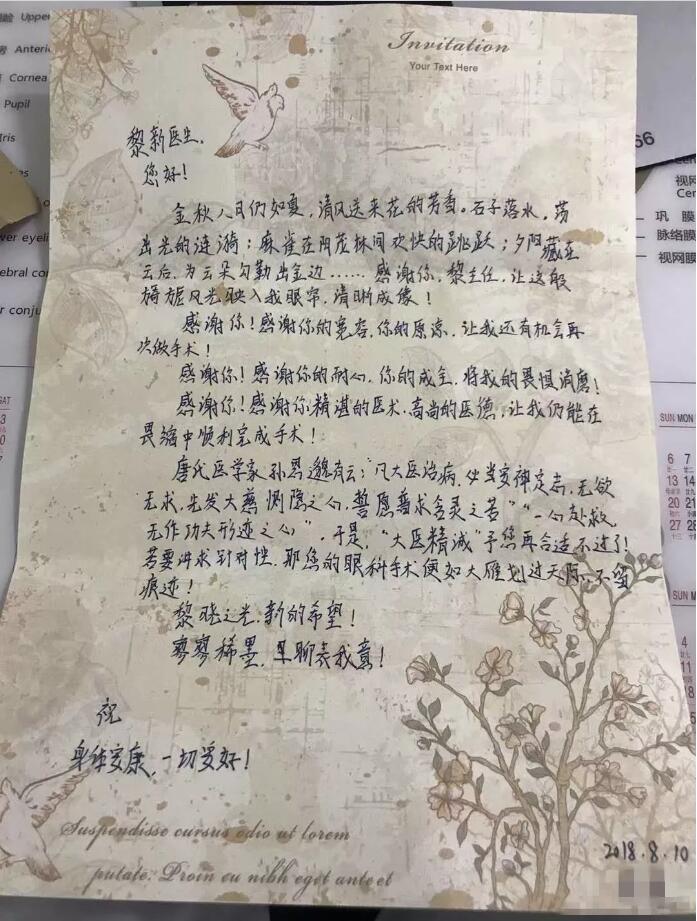 Invitation
Your Text Here
黎新医生,
您好!
金秋八月仍如夏,清风送来花的芳香。石子落水,荡
出光的涟漪;麻雀在阴茂林间欢快的跳跃;夕阳藏在
云后,为云朵勾勒出金边……感谢你,黎主任,让这般
旖旎风光映入我眼帘,清晰成像!
感谢你!感谢你的宽容,你的原谅,让我还有机会再
次做手术!
感谢你!感谢你的耐心,你的成全,将我的畏惧消磨!
感谢你!感谢你精湛的医术,高尚的医德,让我仍能在
畏缩中顺利完成手术!
唐代医学家孙思邈有云:"凡大医治病,必当安神定志,无欲
无求,先发大慈恻隐之心,誓愿普求含灵之苦""一心赴救,
无作功夫形迹之心",于是,"大医精诚"予您再合适不过了!
若要讲求针对性,那您的眼科手术便如大雁划过天际,不留
痕迹!
黎晓之光,新的希望!
寥寥稀墨,聊表我意!
祝
身体安康,一切安好!
Suspendisse cursus odio ut lorem
putate. Proin eu nibh eget ante et
2018.8.10
Upper
Anterior
Cornea
Pupil
Iris
66
巩膜
脉络膜
视网膜
SAT
SUN MON
6 7
13 14
20 21
27 28
SUN M